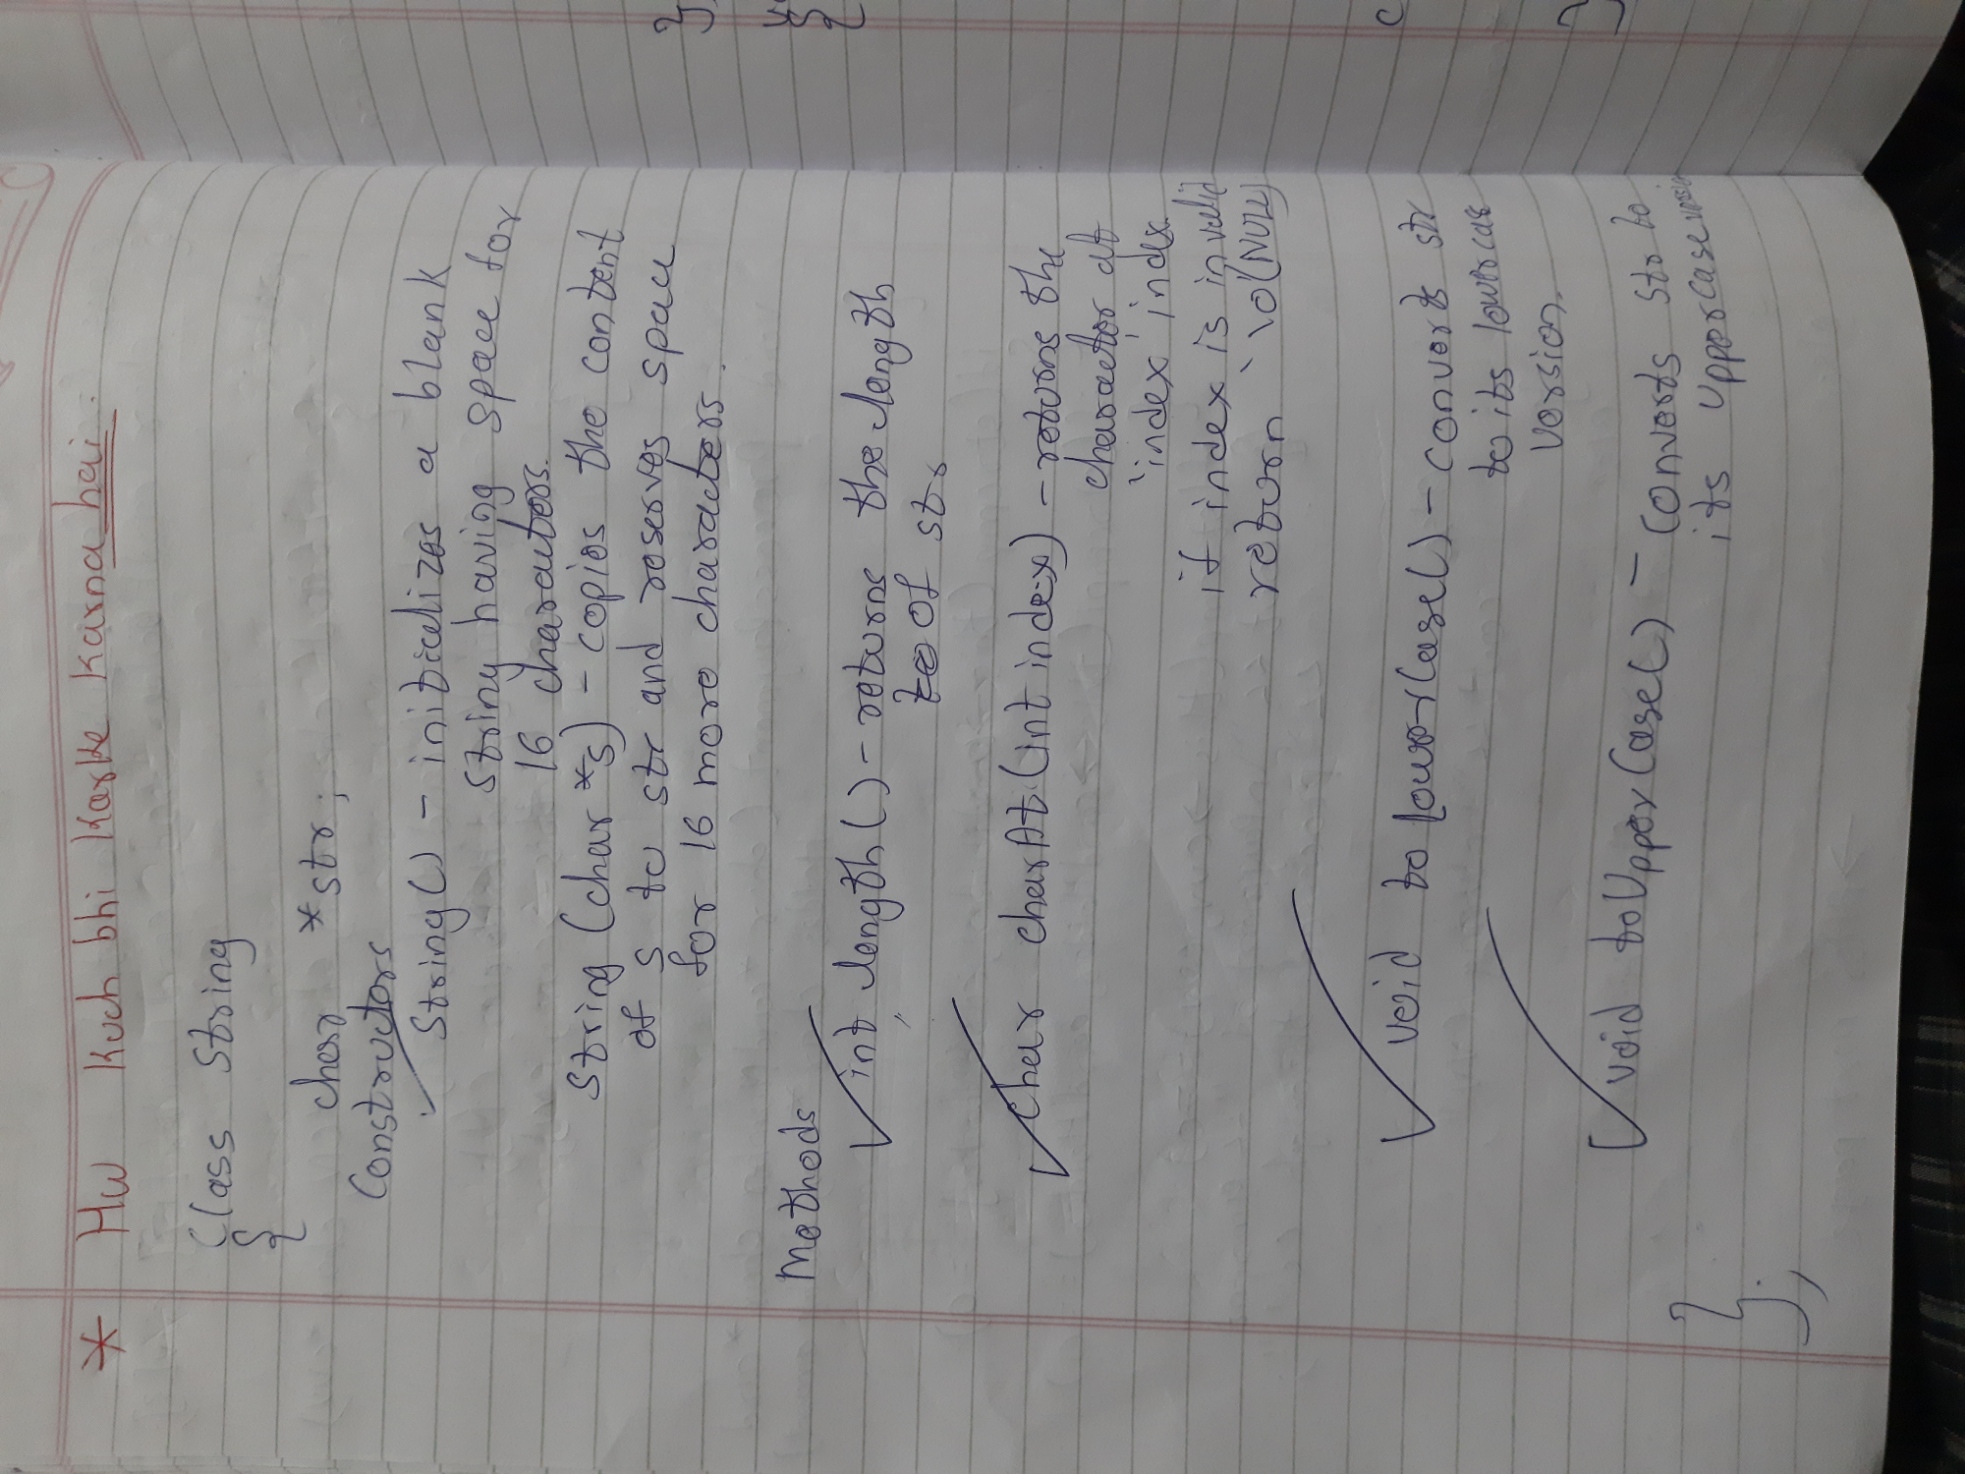 * Hw Kuch bhi Karke Karna hai.
Class String
{
char *str;
Constructors
String() - initializes a blank
string having space for
16 characters.
String (char *s) - copies the content
of s to str and reserves space
for 16 more characters.
Methods
int length() - returns the length
of str
char charAt(int index) - returns the
character at
'index' index
if index is invalid
return '\0'(NULL)
void toLowerCase() - converts str
to its lowercase
version.
void toUpperCase() - converts str to
its uppercase version
};